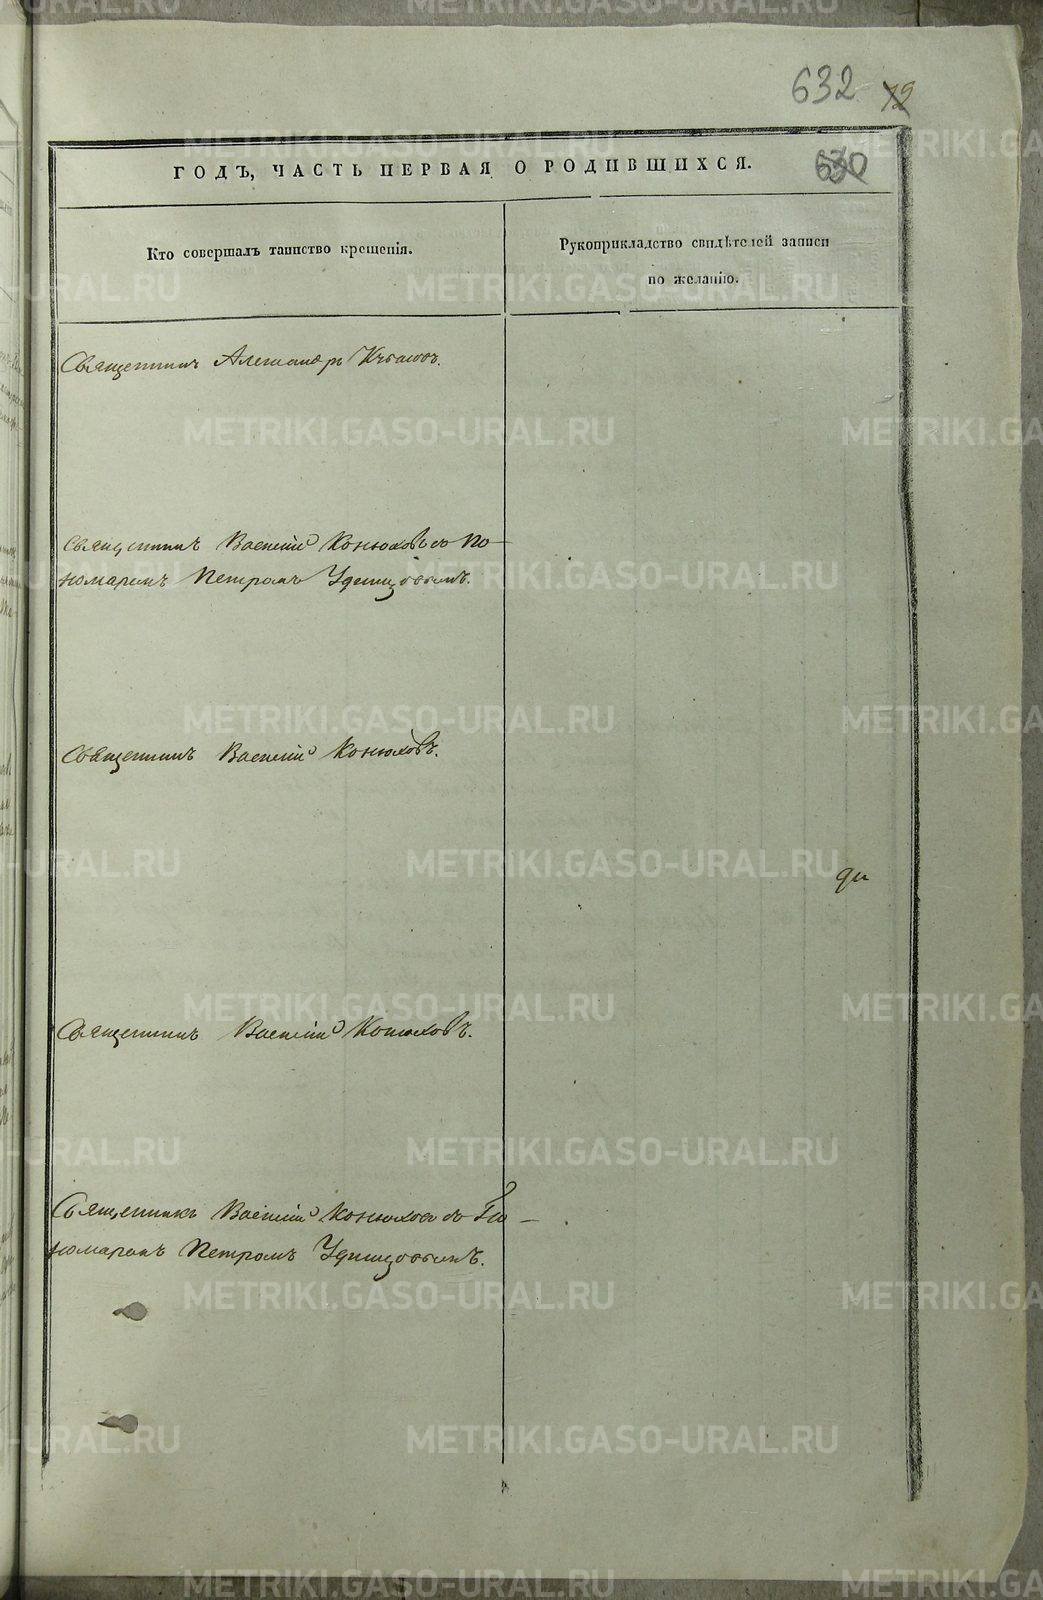 632 12
630
ГОДЪ, ЧАСТЬ ПЕРВАЯ О РОДИВШИХСЯ.
Кто совершалъ таинство крещенія.
Рукоприкладство свидѣтелей записи
по желанію.
Священникъ Александръ
Священникъ Василій Конюховъ съ По-
номаремъ Петромъ Удинцовымъ.
Священникъ Василій Конюховъ.
Священникъ Василій Конюховъ.
Священникъ Василій Конюховъ съ По-
номаремъ Петромъ Удинцовымъ.
METRIKI.GASO-URAL.RU